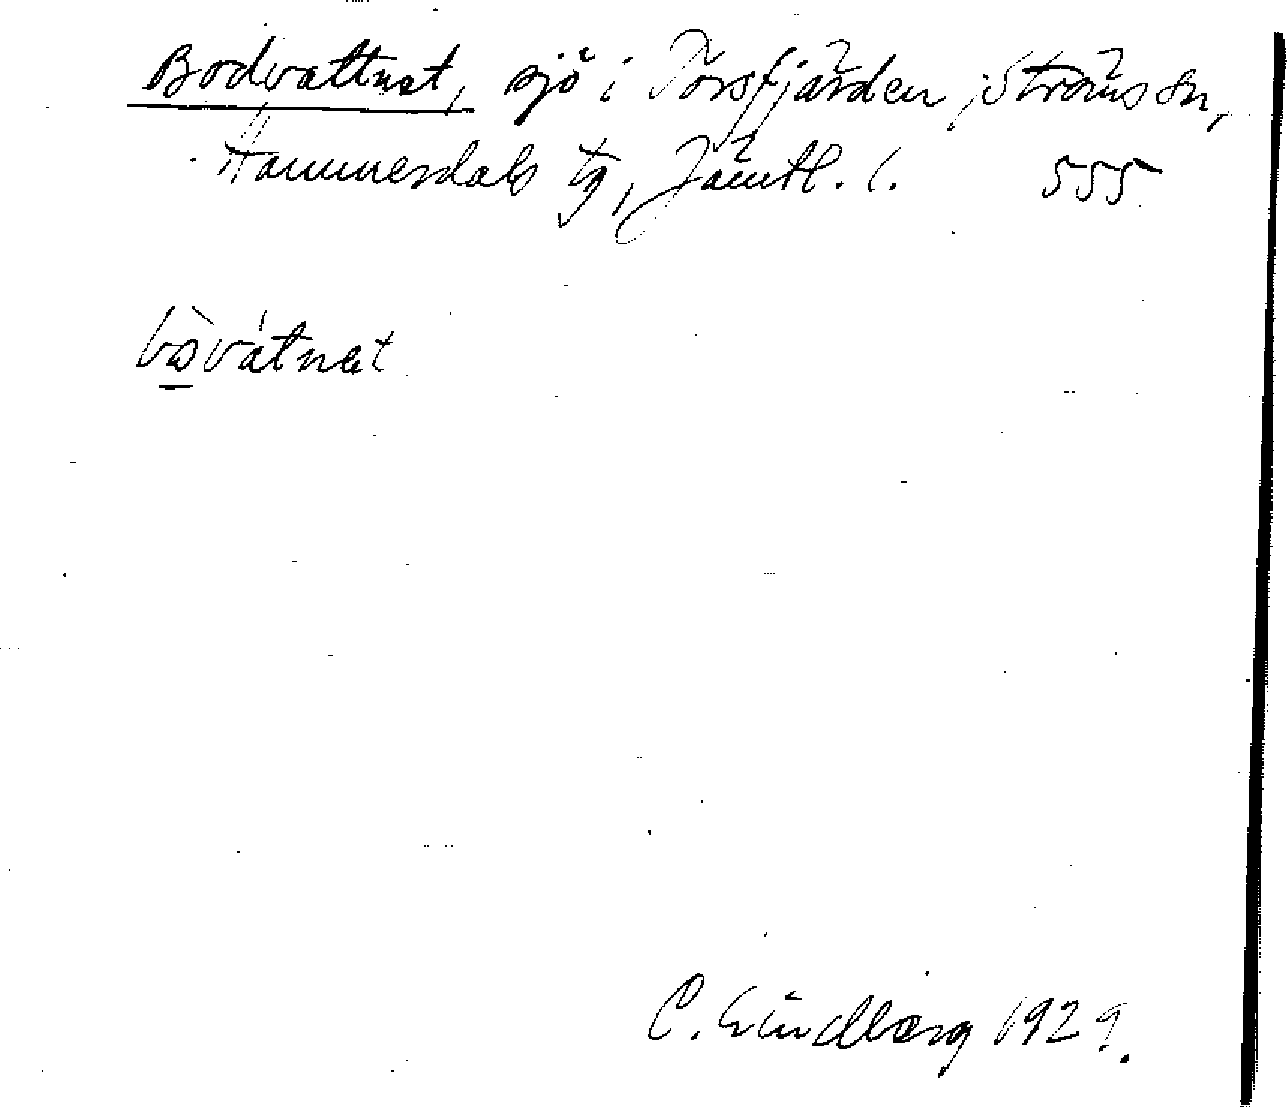 Bodvattnet, sjö i Torsfjärden, Ströms sn,
Hammerdals tg, Jämtl. l. 555.
bòvátnet
C. Lindberg 1929.